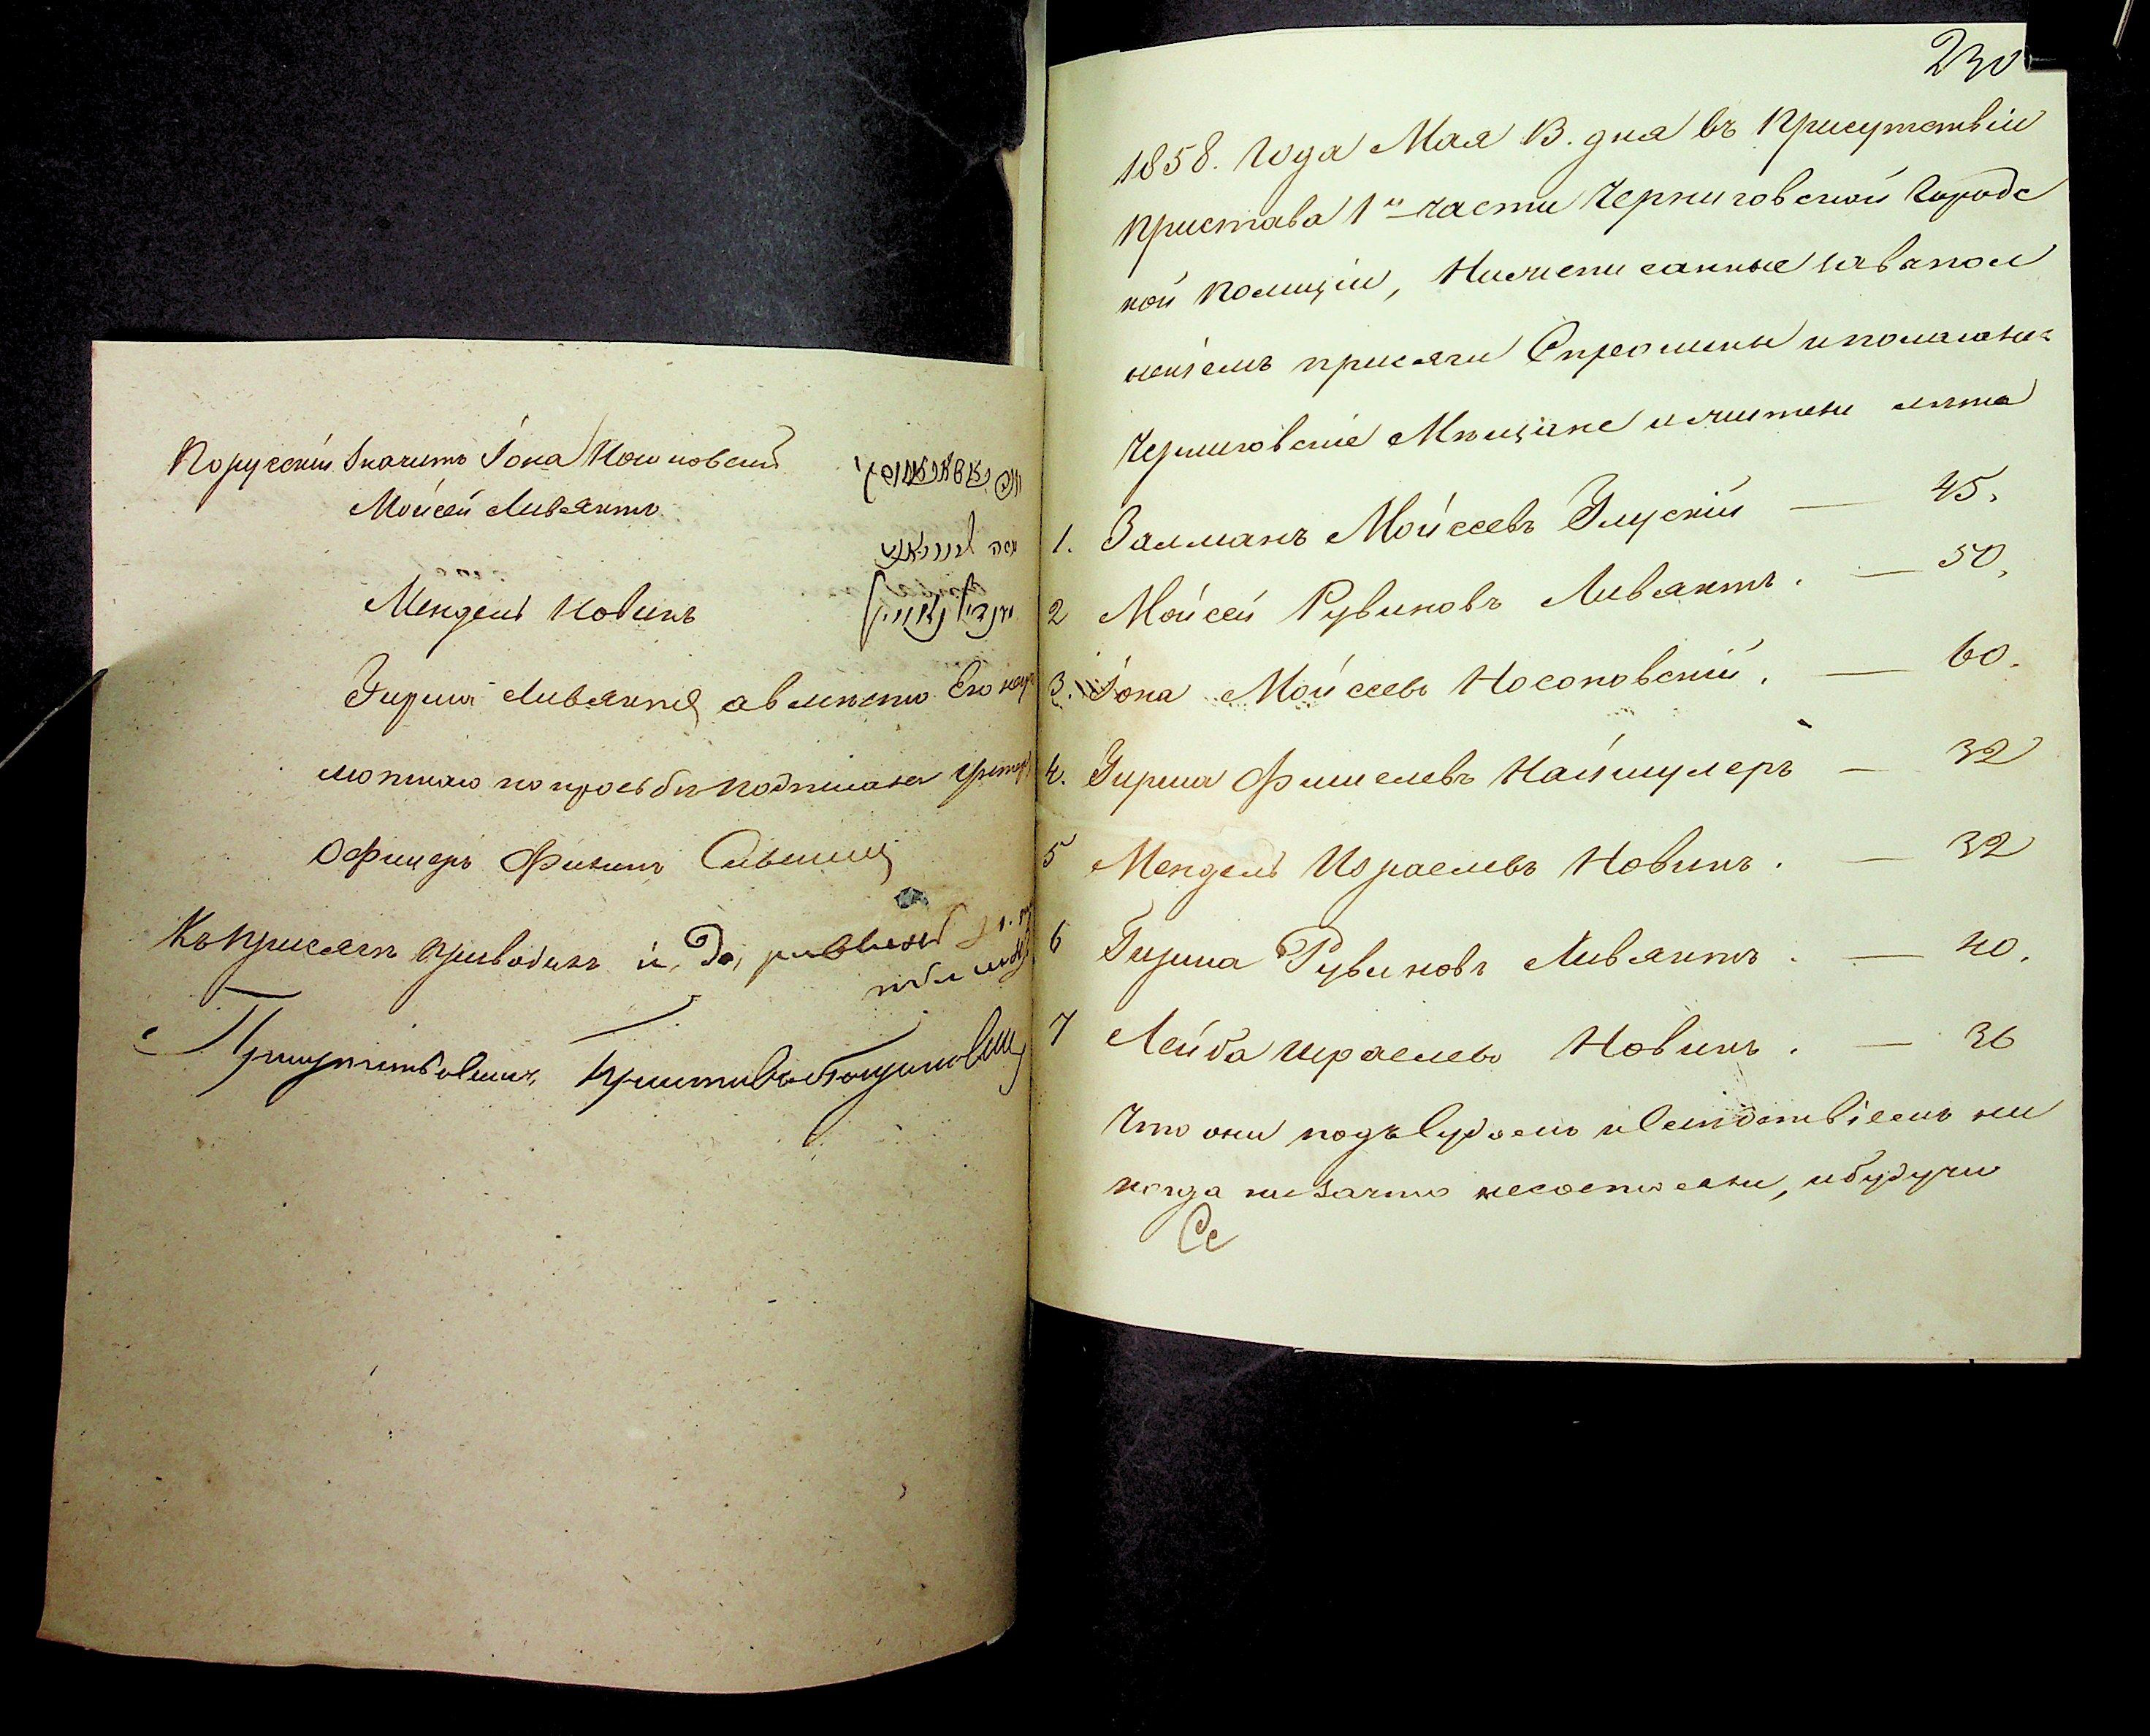 Порусски значитъ Іона Носоновскій
Мойсей Ливянтъ
Мендель Новикъ
Гирша Ливянтъ, а вместо Его негр
мотнаго по прозьбе подписался Унтеръ
Офицеръ Филипъ
Къ присяге приводилъ и. до,
Присутствовалъ, Приставъ
230
1858. Года Мая 13. дня въ Присутствіи
Пристава 1й части Черниговской Городс
кой Полиціи, Нижеписанные
неніемъ присяги Спрошены и показали
Черниговскіе Мещане и жители лета
1. Залманъ Мойсеевъ Глускій — 45.
2 Мойсей Рувиновъ Ливянтъ. — 50.
3. Іона Мойсеевъ Носоновскій. — 60.
4. Гирша Фишелевъ Найшулеръ — 32
5 Мендель Израелевъ Новикъ. — 32
6 Гирша Рувиновъ Ливянтъ. — 40.
7 Лейба Израелевъ Новикъ. — 36
Что они подъ Судомъ и Следствіемъ ни
когда низачто несостояли, и будучи